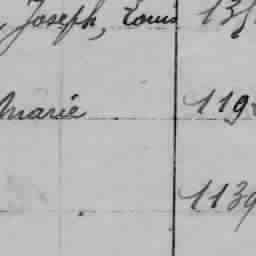 , Joseph, Louis 135
Marie 119
1139